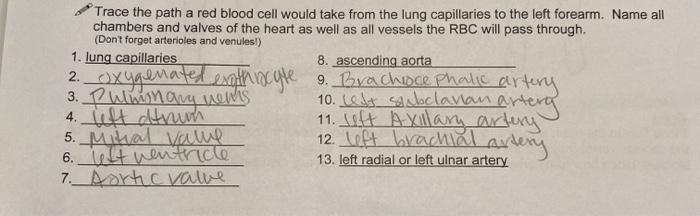 Trace the path a red blood cell would take from the lung capillaries to the left forearm. Name all
chambers and valves of the heart as well as all vessels the RBC will pass through.
(Don't forget arterioles and venules!)
1. lung capillaries
2. oxygenated erythrocyte
3. Pulmonary veins
4. left atrium
5. Mitral valve
6. left ventricle
7. Aortic valve
8. ascending aorta
9. Brachiocephalic artery
10. left subclavian artery
11. left Axillary artery
12. left brachial artery
13. left radial or left ulnar artery